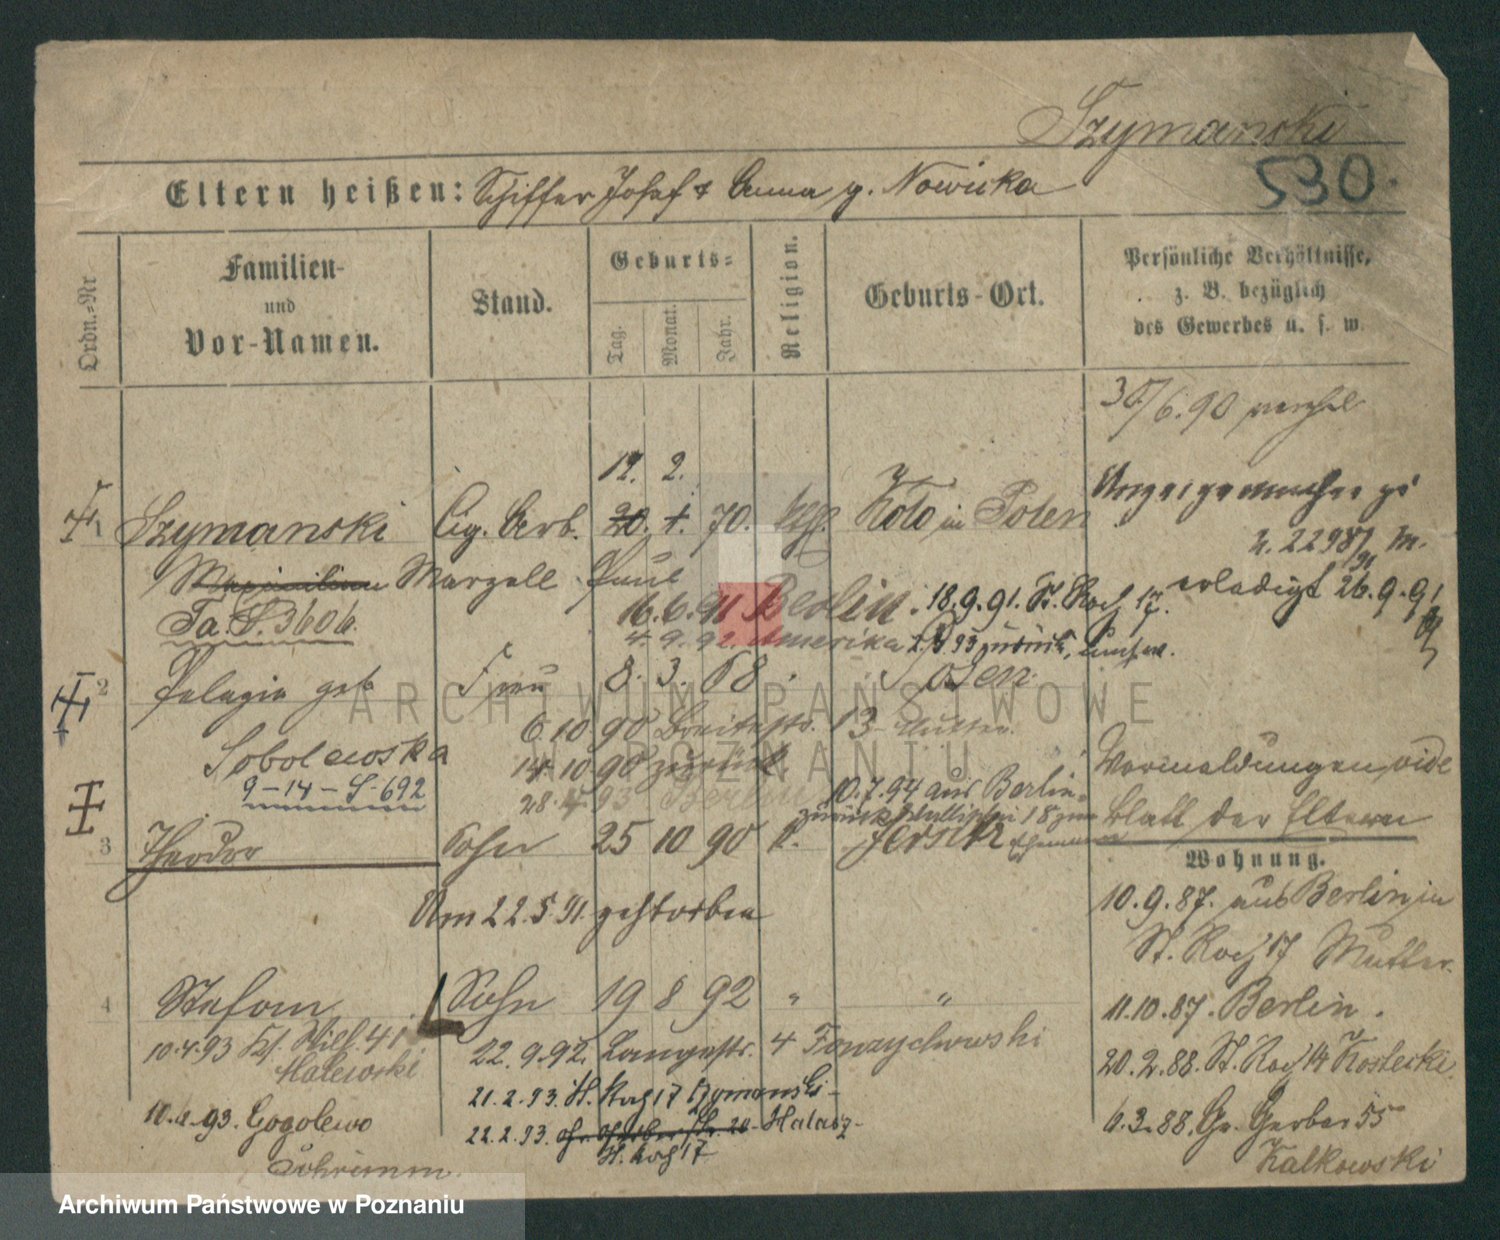 Szymanski
530.
Eltern heißen: Schiffer Josef & Anna g. Nowicka
Ordn.-Nr
Familien-
und
Vor-Namen.
Stand.
Geburts-
Tag.
Monat.
Jahr.
Religion.
Geburts-Ort.
Persönliche Verhältnisse,
z. B. bezüglich
des Gewerbes u. s. w.
30/6.90
12. 2.
1 Szymanski Cig. Arb. 20. 1. 70. Kolo in Polen
Maximilian Marzell Paul
22987 M.
91
erledigt 26.9.91
Ta. S. 3606.
16.6.91 Berlin. 18.9.91. St. Roch 17.
4.9.92. Amerika zurück,
2 Pelagia geb Frau 8. 3. 68 Posen
Sobolewska
9-14-S-692
6.10.90 Breitestr. 13 Mutter.
14.10.90 zurück.
28.4.93 Berlin
10.7.94 aus Berlin
zurück 18
Vormeldungen vide
Blatt der Eltern
3 Theodor Sohn 25 10 90 k. Jersitz
Am 22.5.91. gestorben
Wohnung.
10.9.87. aus Berlin in
St. Roch 17 Mutter.
11.10.87. Berlin.
20.2.88. St. Roch 14 Kostecki.
6.3.88. Gr. Gerber 55
Kalkowski
4 Stefan Sohn 19 8 92 " "
10.4.93 41
Halewski
22.9.92. Langestr. 4
21.2.93. St. Roch 17 Szymanski
22.2.93. Gr. Gerberstr. 20 - Halasz-
St. Roch 17
93. Gogolewo
Schrimm.
ARCHIWUM PAŃSTWOWE
W POZNANIU
Archiwum Państwowe w Poznaniu